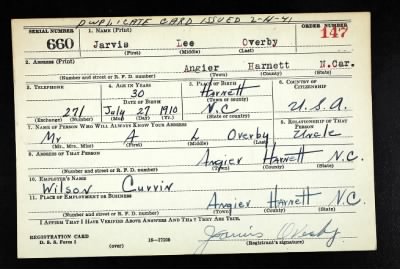 DUPLICATE CARD ISSUED 2-14-41
SERIAL NUMBER 1. NAME (Print) ORDER NUMBER
660 Jarvis Lee Overby 147
(First) (Middle) (Last)
2. ADDRESS (Print)
Angier Harnett N.Car.
(Number and street or R. F. D. number) (Town) (County) (State)
3. TELEPHONE 4. AGE IN YEARS 5. PLACE OF BIRTH 6. COUNTRY OF CITIZENSHIP
30 Harnett
DATE OF BIRTH (Town or county)
271 July 27 1910 N.C. U.S.A.
(Exchange) (Number) (Mo.) (Day) (Yr.) (State or country)
7. NAME OF PERSON WHO WILL ALWAYS KNOW YOUR ADDRESS 8. RELATIONSHIP OF THAT PERSON
Mr A L Overby Uncle
(Mr., Mrs., Miss) (First) (Middle) (Last)
9. ADDRESS OF THAT PERSON
Angier Harnett N.C.
(Number and street or R. F. D. number) (Town) (County) (State)
10. EMPLOYER'S NAME
Wilson Currin
11. PLACE OF EMPLOYMENT OR BUSINESS
Angier Harnett N.C.
(Number and street or R. F. D. number) (Town) (County) (State)
I AFFIRM THAT I HAVE VERIFIED ABOVE ANSWERS AND THAT THEY ARE TRUE.
REGISTRATION CARD
D. S. S. Form 1 (over) 16-17105 Jarvis Overby
(Registrant's signature)